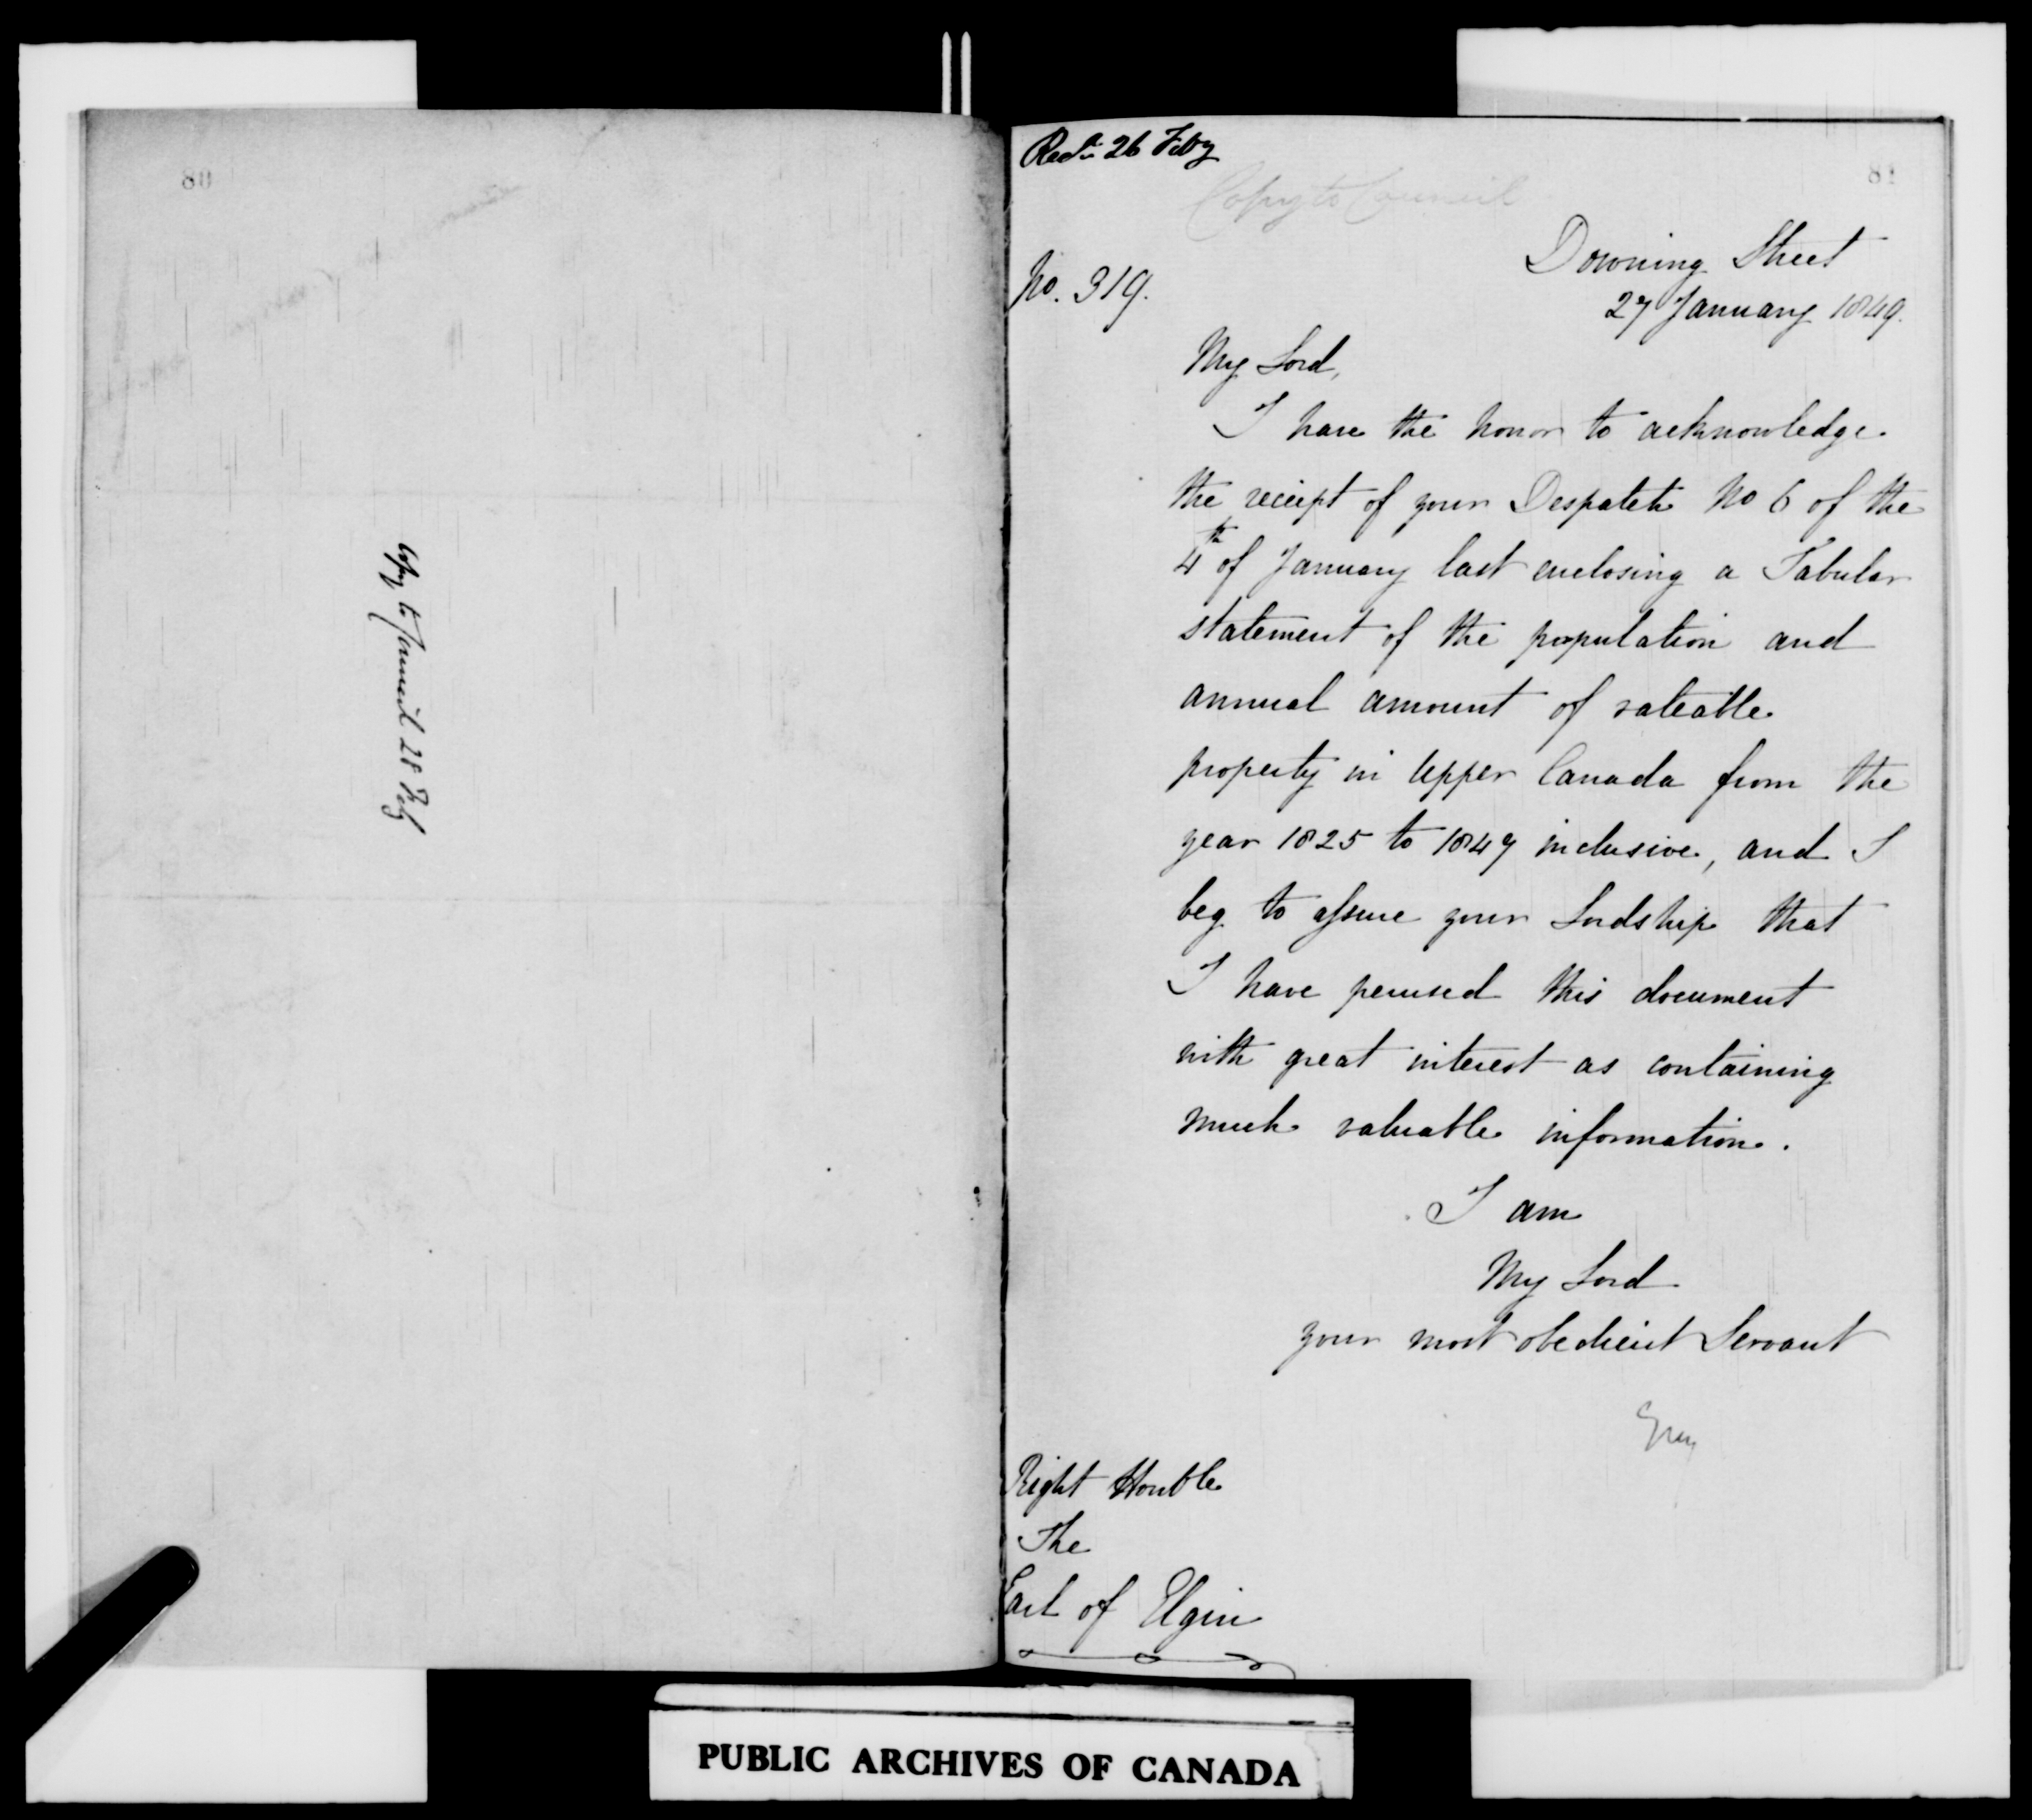 80
Copy to Council 28 Feby
Recd. 26 Feby
81
Copy to Council
Downing Street
No. 319.
27 January 1849.
My Lord,
I have the honor to acknowledge
the receipt of your Despatch No 6 of the
4th of January last enclosing a Tabular
statement of the population and
annual amount of rateable
property in Upper Canada from the
year 1825 to 1847 inclusive, and I
beg to assure your Lordship that
I have perused this document
with great interest as containing
much valuable information.
I am
My Lord
your most obedient Servant
Grey
Right Honble
The
Earl of Elgin
PUBLIC ARCHIVES OF CANADA